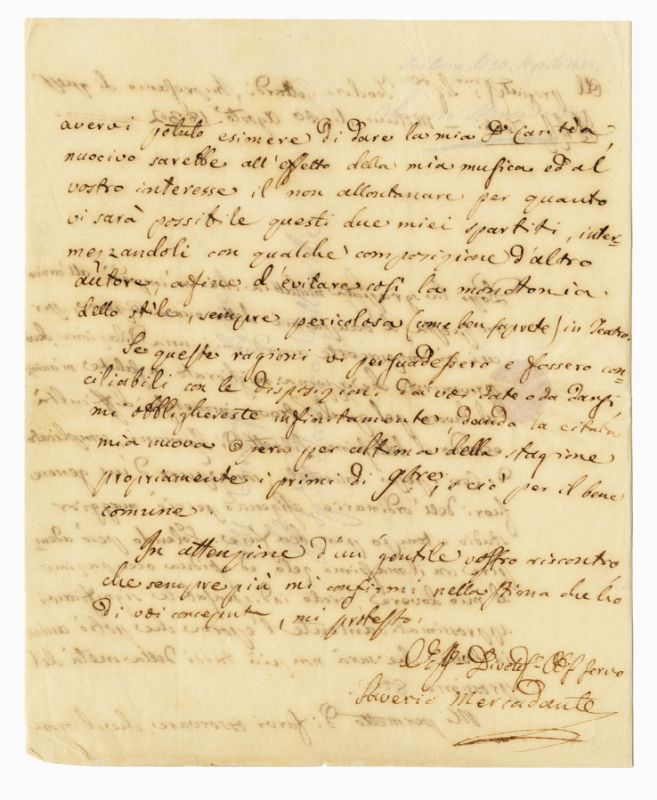 avervi potuto esimere di dare la mia Dª Caritèa,
nuocivo sarebbe all'effetto della mia musica ed al
vostro interesse il non allontanare per quanto
vi sarà possibile questi due miei spartiti, inter=
mezzandoli con qualche composizione d'altro
autore, afine d'evitare così la monotonia
dello stile, sempre pericolosa (come ben saprete) in Teatro.
Se queste ragioni vi persuadessero e fossero con=
ciliabili con le disposizioni da voi date o da darsi,
mi obblighereste infinitamente, dando la citata
mia nuova Opera per ultima della stagione
propriamente i primi di 9bre, e ciò per il bene
comune
In attenzione d'un gentile vostro riscontro
che sempre più mi confirmi nella stima che ho
di voi conceputa, mi protesto:
Divotis. Obb servo
Saverio Mercadante